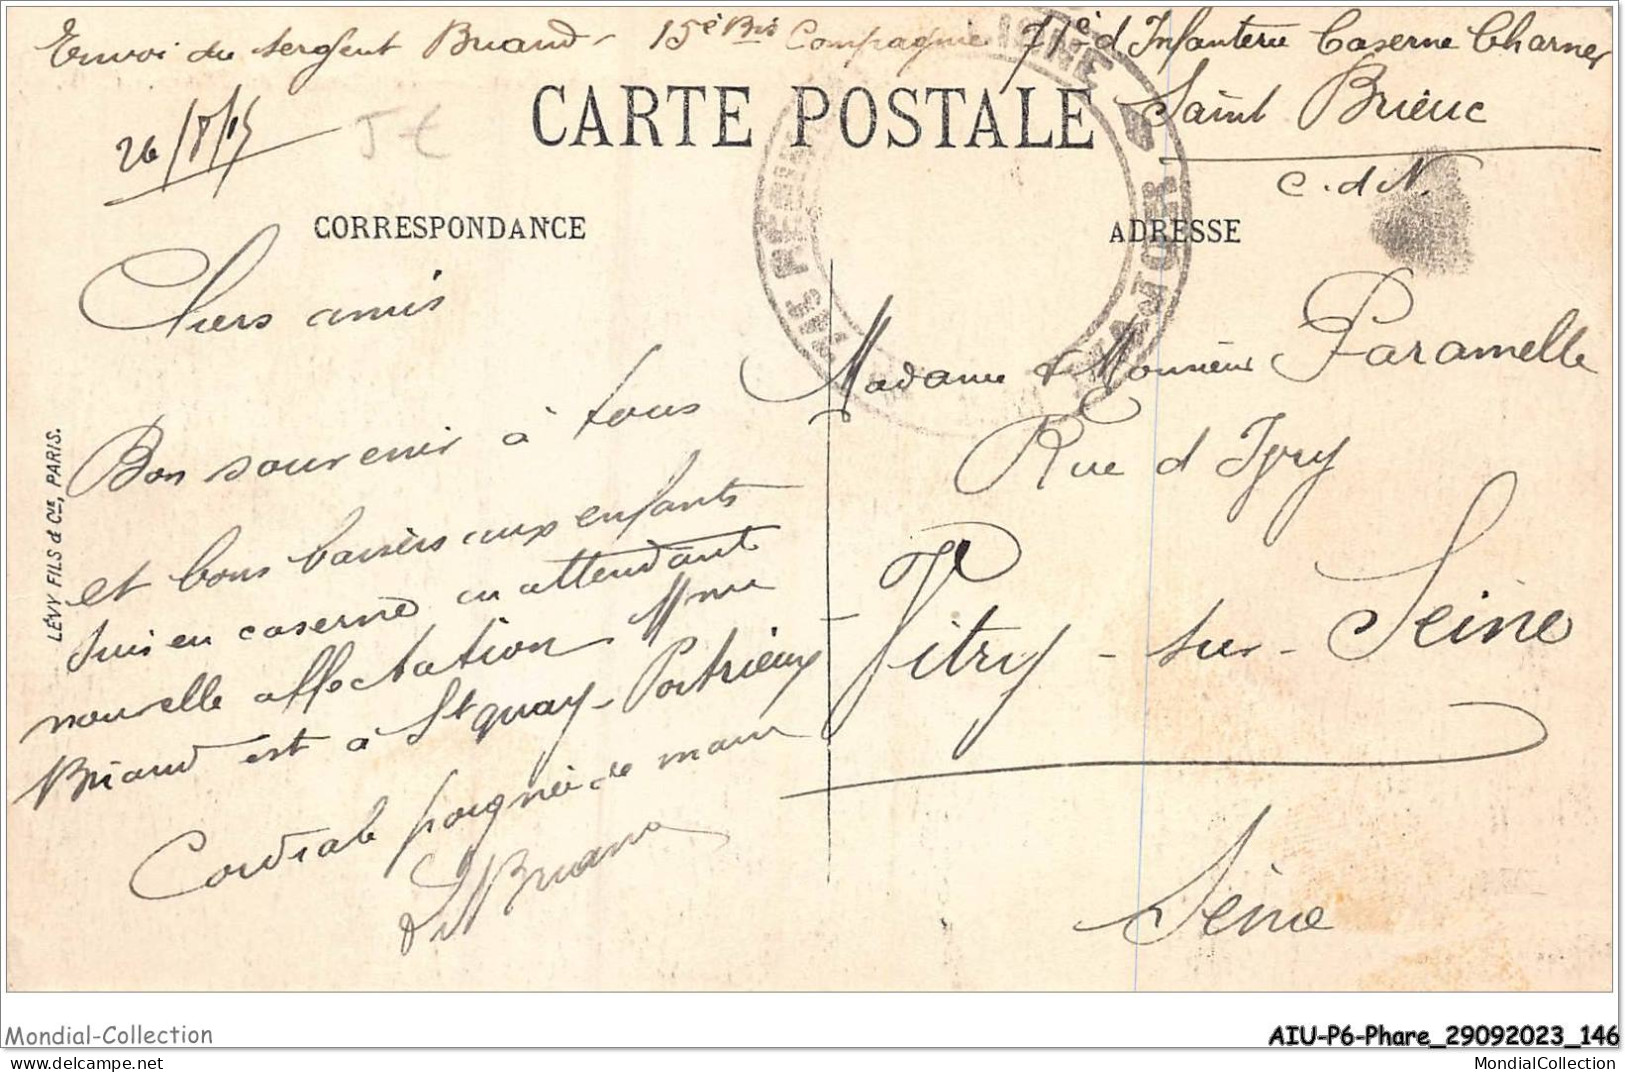 Envoi du sergent Briand - 15e Bis Compagnie 71e d'Infanterie Caserne Charner
Saint Brieuc
C. d N.
26/8/15
5 €
CARTE POSTALE
CORRESPONDANCE
ADRESSE
Chers amis
Bon souvenir à tous
et bons baisers aux enfants
Suis en caserne en attendant
nouvelle affectation Mme
Briand est à St Quay-Portrieux
Cordiale poignée de main
Briand
Madame & Monsieur Paramelle
Rue d'Ivry
Vitry-sur-Seine
Seine
LÉVY FILS & Cie, PARIS.
Mondial-Collection
AIU-P6-Phare_29092023_146
MondialCollection